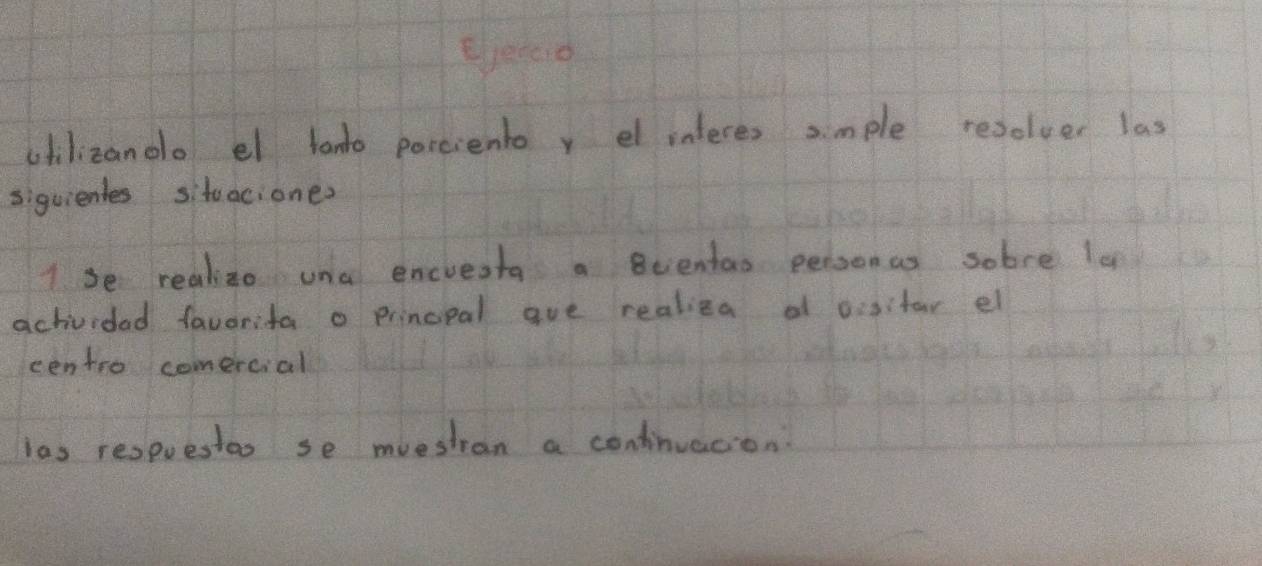 Ejercio
utilizando el tanto porciento y el interes simple resolver las
siguientes situaciones
1 se realizo una encuesta a 8cientas personas sobre la
actividad favorita o principal que realiza al visitar el
centro comercial
las respuestas se muestran a continuacion: